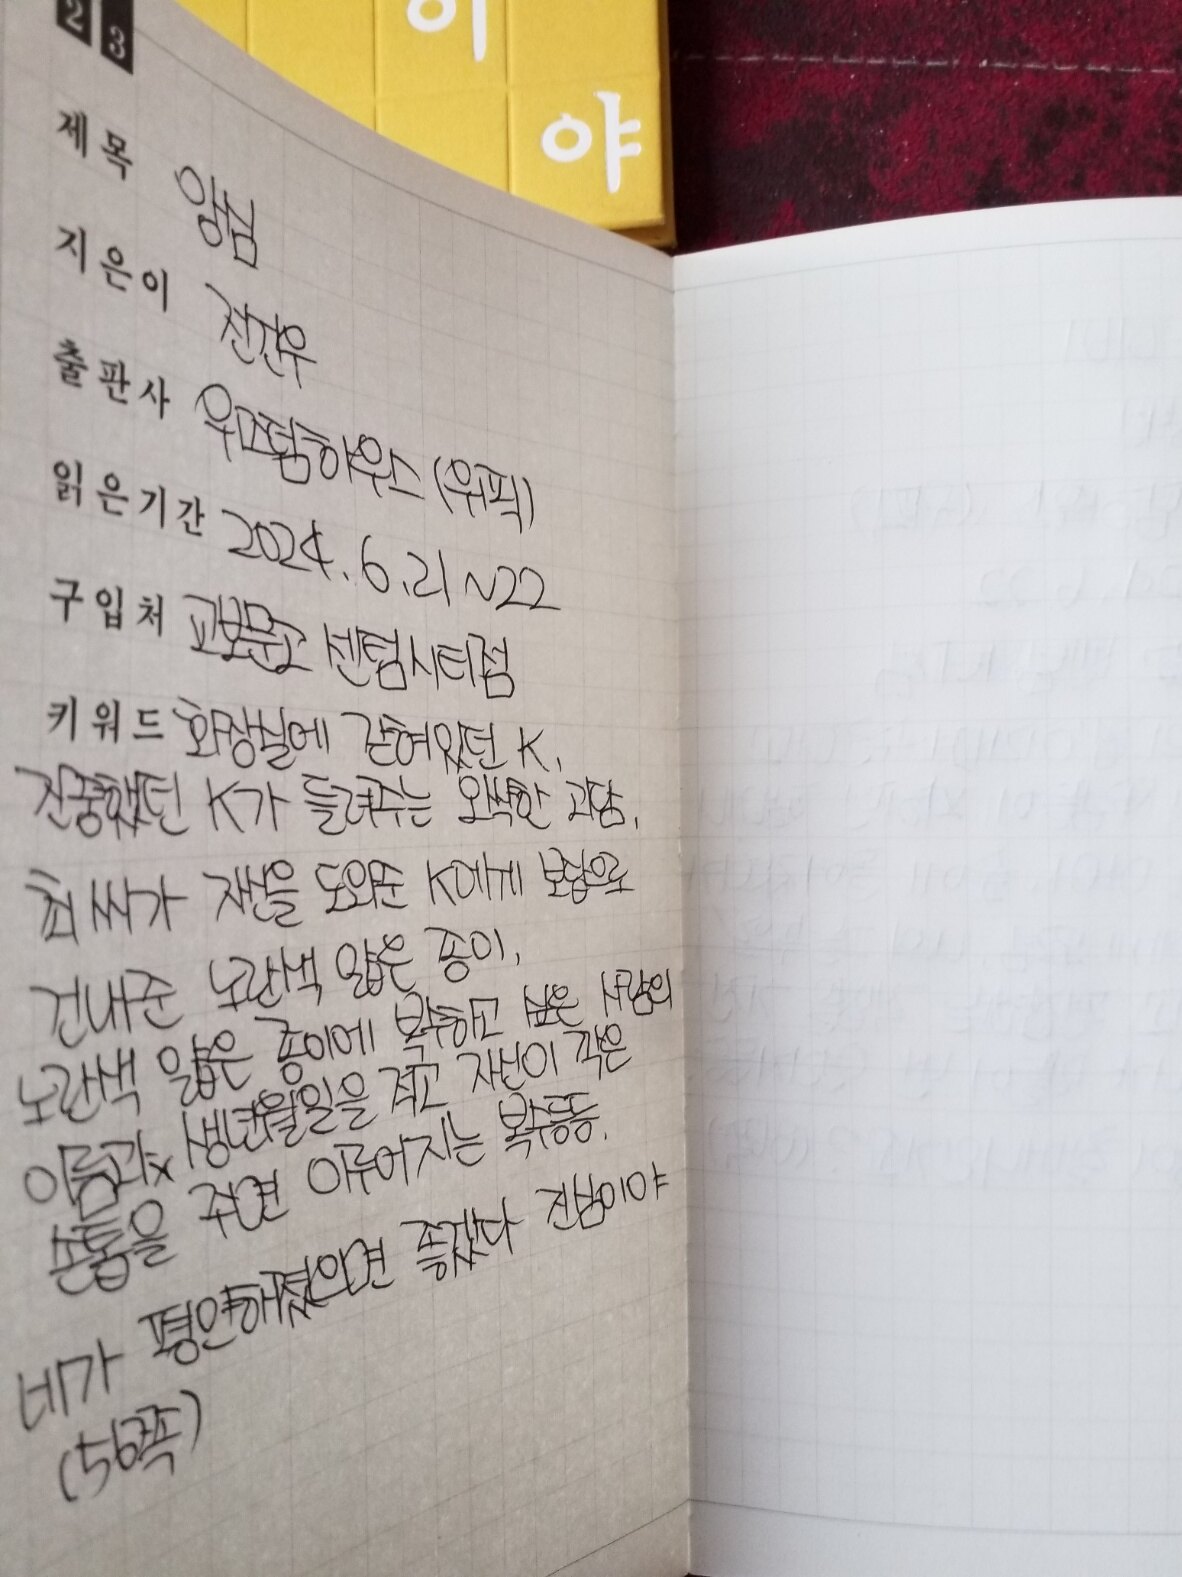 이
야
23
제목 앙심
지은이 전건우
출판사 위즈덤하우스 (위픽)
읽은기간 2024.6.21~22
구입처 교보문고 센텀시티점
키워드 화장실에 갇혀있던 K,
진중했던 K가 들려주는 오싹한 괴담,
최씨가 자신을 도와준 K에게 보답으로
건내준 노란색 얇은 종이,
노란색 얇은 종이에 복수하고 싶은 사람의
이름과 생년월일을 적고 자신이 깎은
손톱을 주면 이루어지는 복수 등등.
네가 평안해졌으면 좋겠다 진범이야
(56쪽)